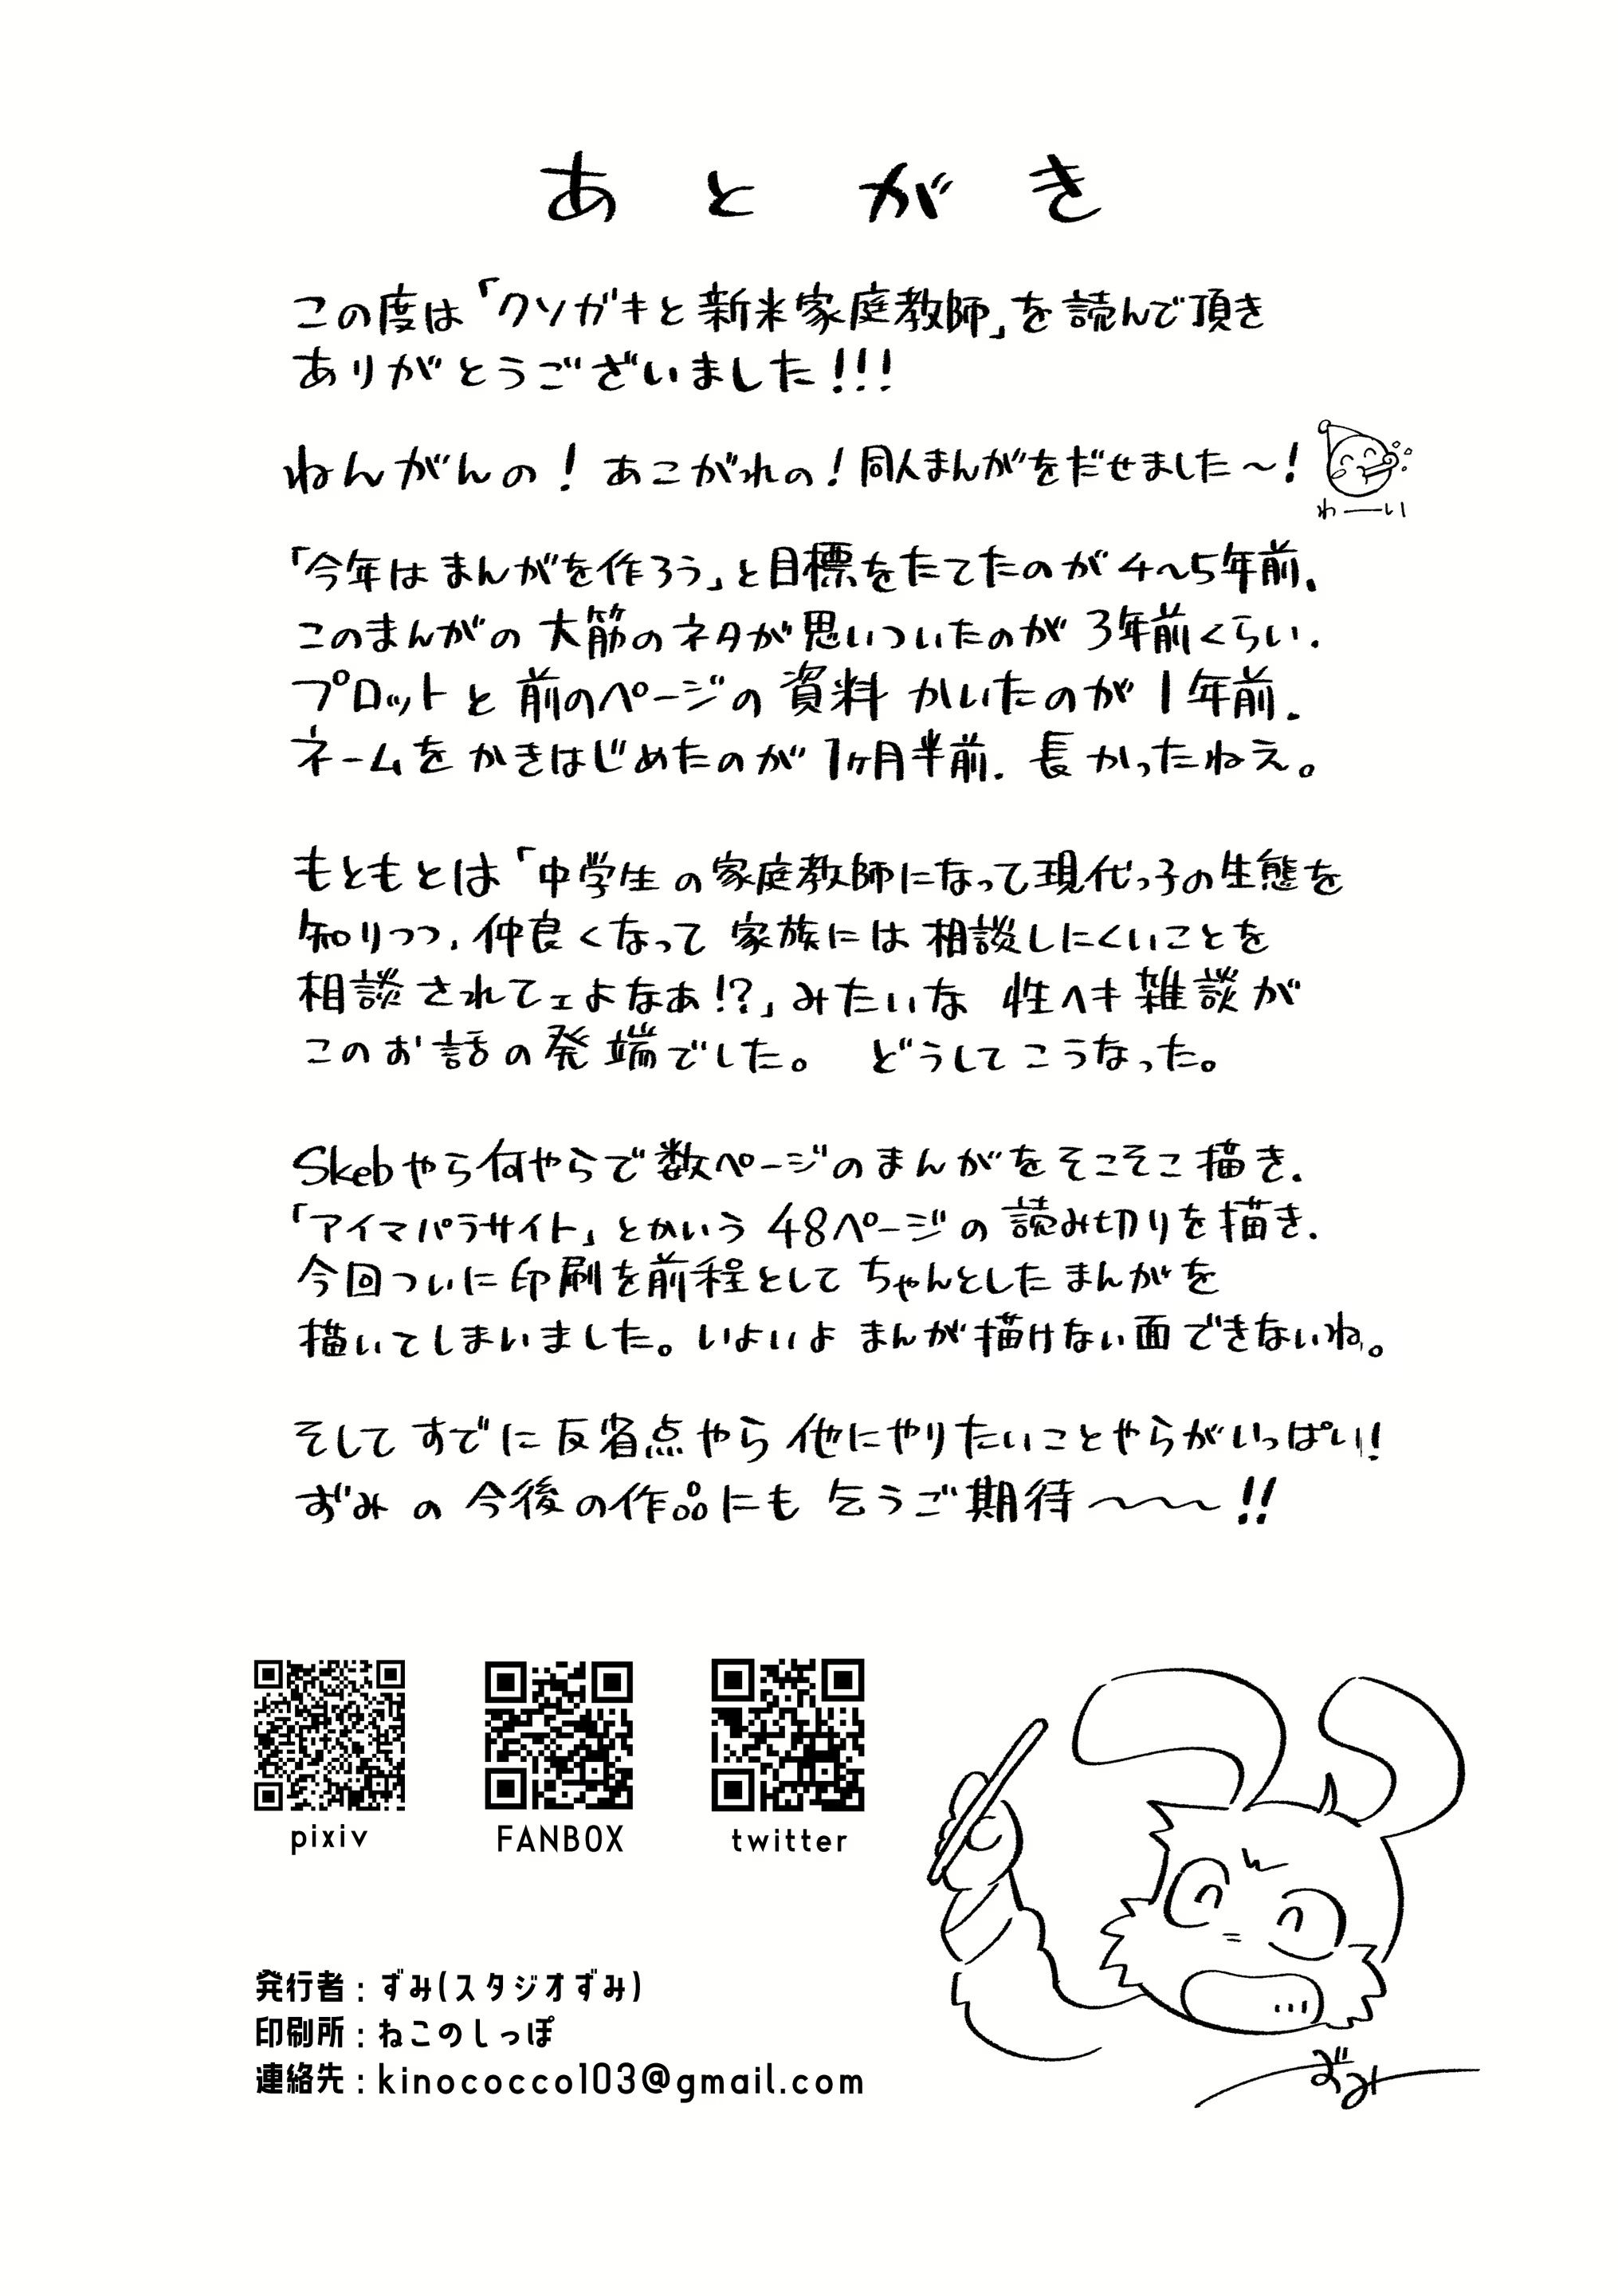 あとがき
この度は「クソガキと新米家庭教師」を読んで頂き
ありがとうございました!!!
ねんがんの！あこがれの！同人まんがをだせました〜！
わーい
「今年はまんがを作ろう」と目標をたてたのが4〜5年前.
このまんがの大筋のネタが思いついたのが3年前くらい.
プロットと前のページの資料かいたのが1年前.
ネームをかきはじめたのが1ヶ月半前. 長かったねえ。
もともとは「中学生の家庭教師になって現代っ子の生態を
知りつつ、仲良くなって家族には相談しにくいことを
相談されてェよなあ!?」みたいな性ヘキ雑談が
このお話の発端でした。 どうしてこうなった。
Skebやら何やらで数ページのまんがをそこそこ描き.
「アイマパラサイト」とかいう48ページの読み切りを描き.
今回ついに印刷を前程としてちゃんとしたまんがを
描いてしまいました。いよいよまんが描けない面できないね。
そしてすでに反省点やら他にやりたいことやらがいっぱい!
ずみの今後の作品にも乞うご期待〜〜〜!!
pixiv
FANBOX
twitter
発行者：ずみ(スタジオずみ)
印刷所：ねこのしっぽ
連絡先：kinococco103@gmail.com
ずみ